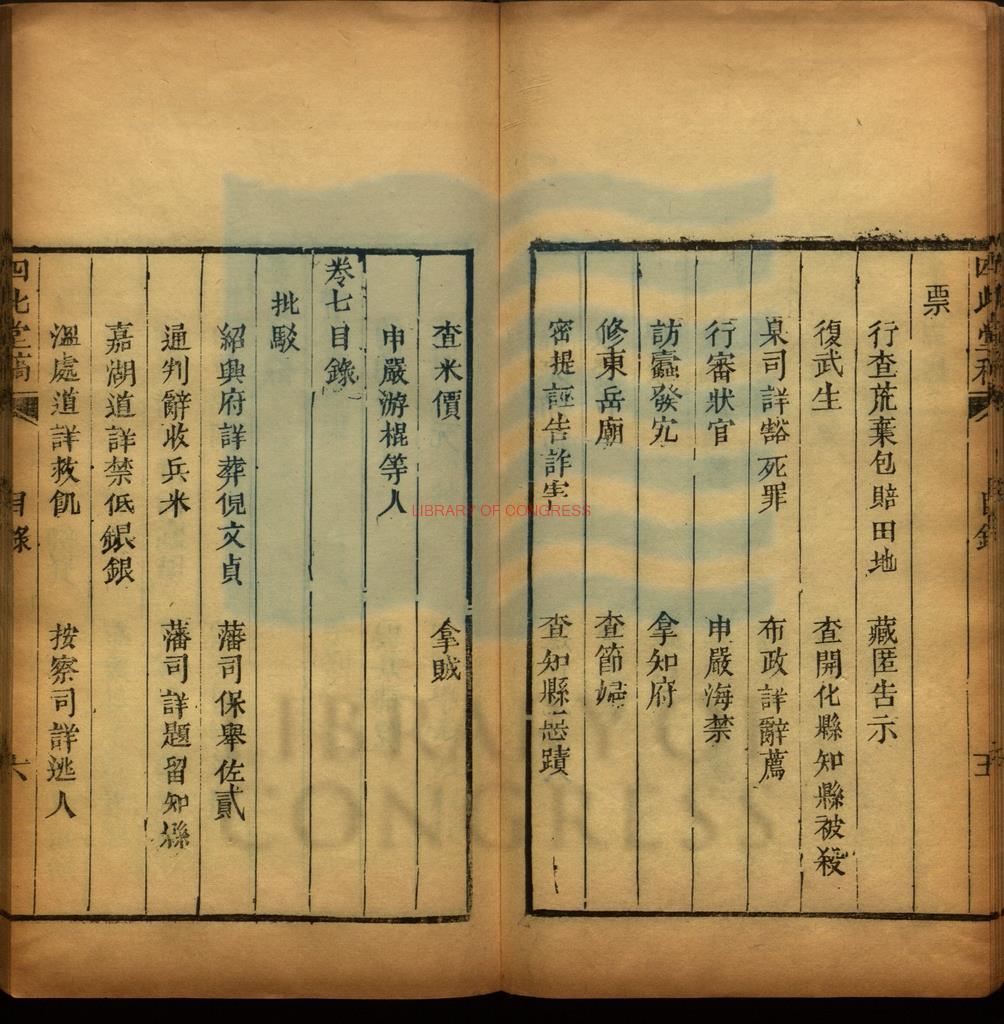 票
行查荒棄包賠田地 藏匿告示
復武生 查開化縣知縣被殺
臬司詳豁死罪 布政詳辭薦
行審狀官 申嚴海禁
訪蠹發宄 拿知府
修東岳廟 查節婦
密提誣告詐害 查知縣惡蹟
查米價 拿賊
申嚴游棍等人
卷七目錄
批駁
紹興府詳葬倪文貞 藩司保舉佐貳
通判辭收兵米 藩司詳題留知縣
嘉湖道詳禁低銀銀
溫處道詳救飢 按察司詳逃人
四此堂稿 目錄 六
LIBRARY OF CONGRESS